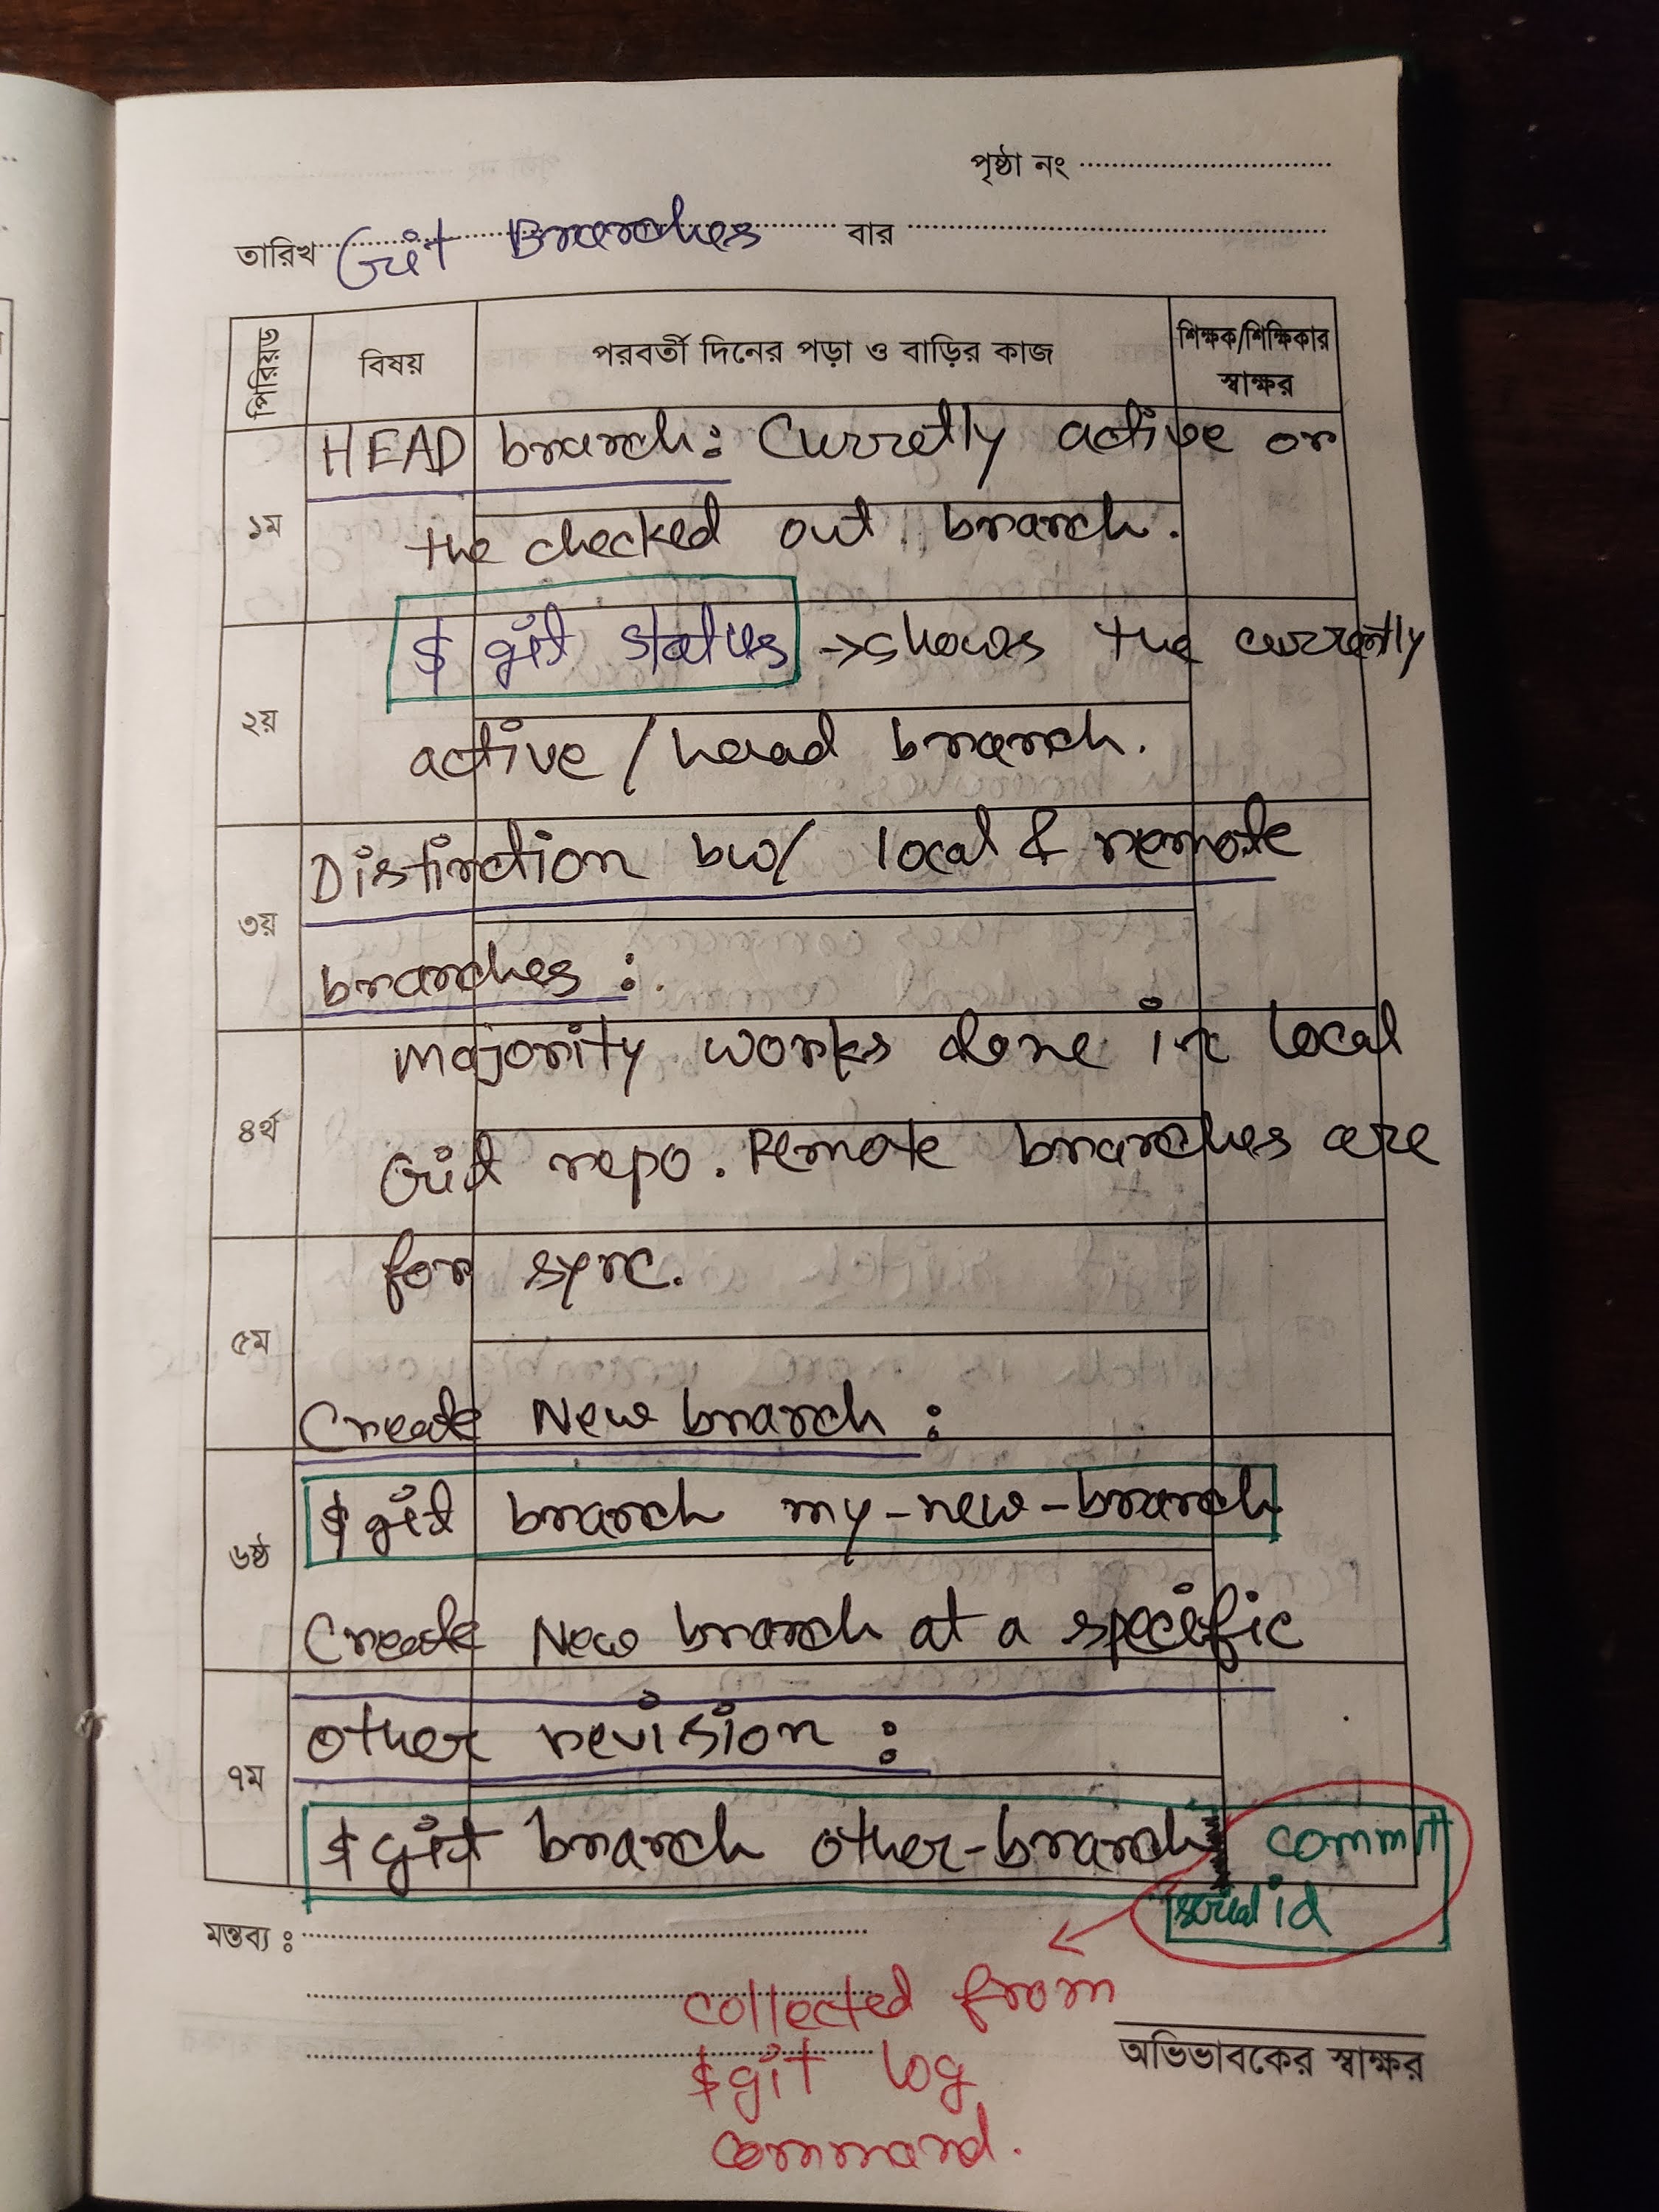 পৃষ্ঠা নং
তারিখ Git Branches বার
পিরিয়ড বিষয় পরবর্তী দিনের পড়া ও বাড়ির কাজ শিক্ষক/শিক্ষিকার স্বাক্ষর
HEAD branch: Curretly active or
১ম
the checked out branch.
$ git status ->shows the currently
২য়
active / head branch.
Distinction bw/ local & remote
৩য়
branches :
majority works done in local
৪র্থ
Git repo. Remote branches are
for sync.
৫ম
Create New branch :
$ git branch my-new-branch
৬ষ্ঠ
Create New branch at a specific
other revision :
৭ম
$ git branch other-branch commit
id
মন্তব্য :
collected from
$git log
command.
অভিভাবকের স্বাক্ষর